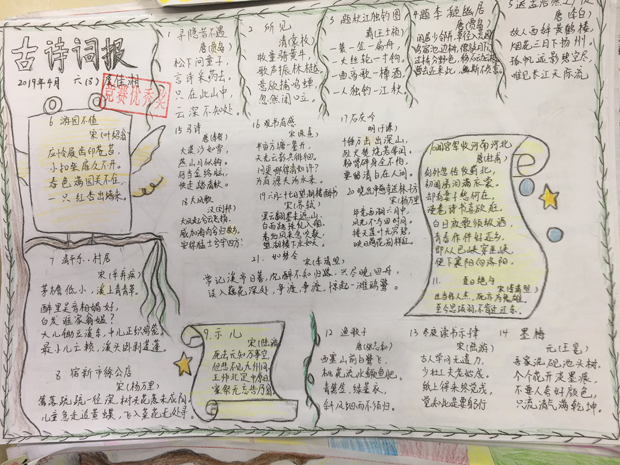 古诗词报
2019年4月 六(5)
竞赛优秀奖
1 寻隐者不遇
唐(贾岛)
松下问童子,
言师采药去。
只在此山中,
云深不知处。
2 所见
清(袁枚)
牧童骑黄牛,
歌声振林樾。
意欲捕鸣蝉,
忽然闭口立。
3 题秋江独钓图
清(王士祯)
一蓑一笠一扁舟,
一丈丝纶一寸钩。
一曲高歌一樽酒,
一人独钓一江秋。
4 题李凝幽居
唐(贾岛)
故人西辞黄鹤楼,
烟花三月下扬州。
孤帆远影碧空尽,
唯见长江天际流。
6 游园不值
宋(叶绍翁)
应怜屐齿印苍苔,
小扣柴扉久不开。
春色满园关不住,
一只红杏出墙来。
15 马诗
唐(李贺)
大漠沙如雪,
燕山月似钩。
何当金络脑,
快走踏清秋。
16 观书有感
宋(朱熹)
半亩方塘一鉴开,
天光云影共徘徊。
问渠那得清如许?
为有源头活水来。
17 石灰吟
明(于谦)
千锤万击出深山,
烈火焚烧若等闲。
粉骨碎身全不怕,
要留清白在人间。
18 大风歌
汉(刘邦)
大风起兮云飞扬,
威加海内兮归故乡,
安得猛士兮守四方!
19 六月二十七日望湖楼醉书
宋(苏轼)
黑云翻墨未遮山,
白雨跳珠乱入船。
卷地风来忽吹散,
望湖楼下水如天。
20 晓出净慈寺送林子方
宋(杨万里)
毕竟西湖六月中,
风光不与四时同。
接天莲叶无穷碧,
映日荷花别样红。
21. 如梦令
宋(李清照)
常记溪亭日暮,沉醉不知归路,兴尽晚回舟,
误入藕花深处,争渡,争渡,惊起一滩鸥鹭。
10 闻官军收河南河北
唐(杜甫)
剑外忽传收蓟北,
初闻涕泪满衣裳。
却看妻子愁何在,
漫卷诗书喜欲狂。
白日放歌须纵酒,
青春作伴好还乡。
即从巴峡穿巫峡,
便下襄阳向洛阳。
11. 夏日绝句
宋(李清照)
生当作人杰,死亦为鬼雄。
至今思项羽,不肯过江东。
7 清平乐·村居
宋(辛弃疾)
茅檐低小,溪上青青草。
醉里吴音相媚好,
白发谁家翁媪?
大儿锄豆溪东,中儿正织鸡笼。
最小儿亡赖,溪头卧剥莲蓬。
8 宿新市徐公店
宋(杨万里)
篱落疏疏一径深,树头花落未成阴。
儿童急走追黄蝶,飞入菜花无处寻。
9. 示儿
宋(陆游)
死去元知万事空,
但悲不见九州同。
王师北定中原日,
家祭无忘告乃翁。
12 渔歌子
唐(张志和)
西塞山前白鹭飞,
桃花流水鳜鱼肥。
青箬笠,绿蓑衣,
斜风细雨不须归。
13 冬夜读书示子聿
宋(陆游)
古人学问无遗力,
少壮工夫老始成。
纸上得来终觉浅,
绝知此事要躬行
14 墨梅
元(王冕)
吾家洗砚池头树,
个个花开淡墨痕。
不要人夸好颜色,
只流清气满乾坤。